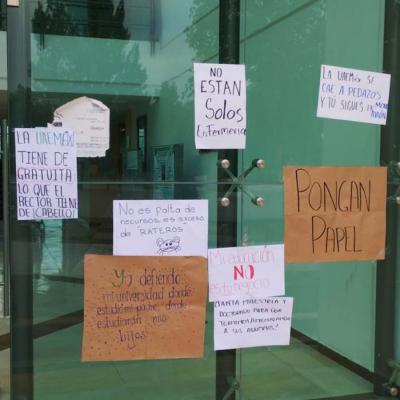 NO ESTAN
Solos
Enfermería
LA UAEMéx SE
CAE A PEDAZOS
Y TÚ SIGUES
LA UAEMéx
TIENE DE
GRATUITA
LO QUE EL
RECTOR TIENE
DE ¡CABELLO!
PONGAN
PAPEL
No es falta de
recursos, es exceso
de "RATEROS"
Mi educación
NO
es tu negocio
Yo defiendo
mi universidad donde
estudió mi padre, donde
estudiarán mis
hijos
¿TANTA MAESTRÍA Y
DOCTORADO PARA QUE
TERMINEN
A SUS ALUMNOS?